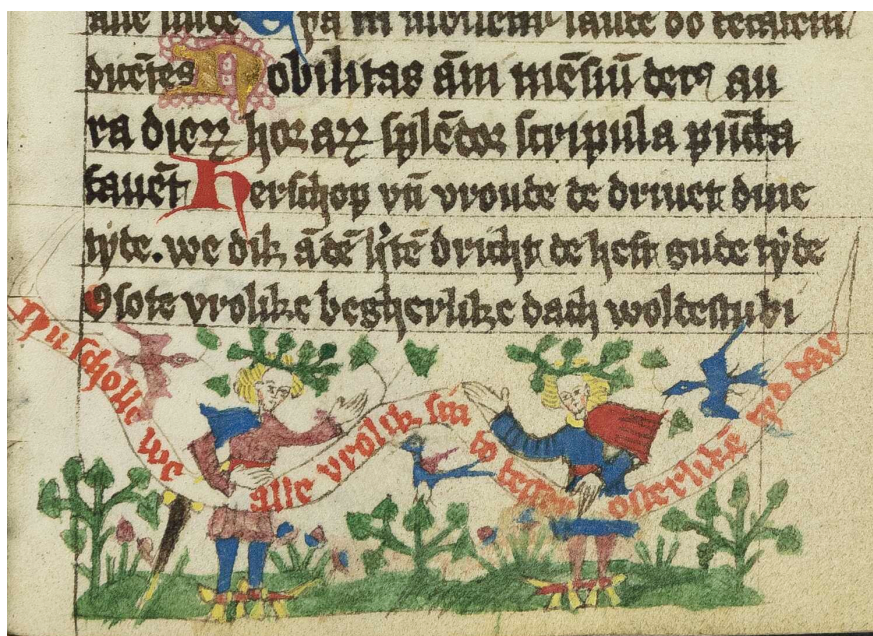 alle
dicētes Nobilitas ām mēsiū au
ra dieꝝ horaꝝ splēdor scripula pūcta
fauēt Herschop vn̄ vroude de driuet dine
tyde. we dik dricht de heft gude tyde
O sote vrolike begherlike dach woldestu bi
Nu scholle we alle vrolik sin to osterlikē